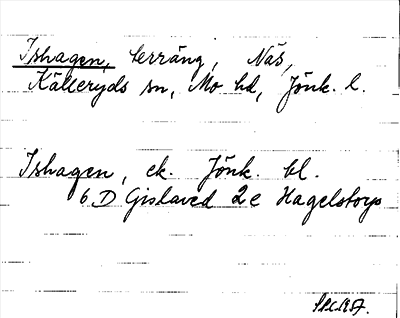 Ishagen, terräng, Näs,
Källeryds sn, Mo hd, Jönk. l.
Ishagen, ek. Jönk. bl.
6 D Gislaved 2 e Hagelstorp